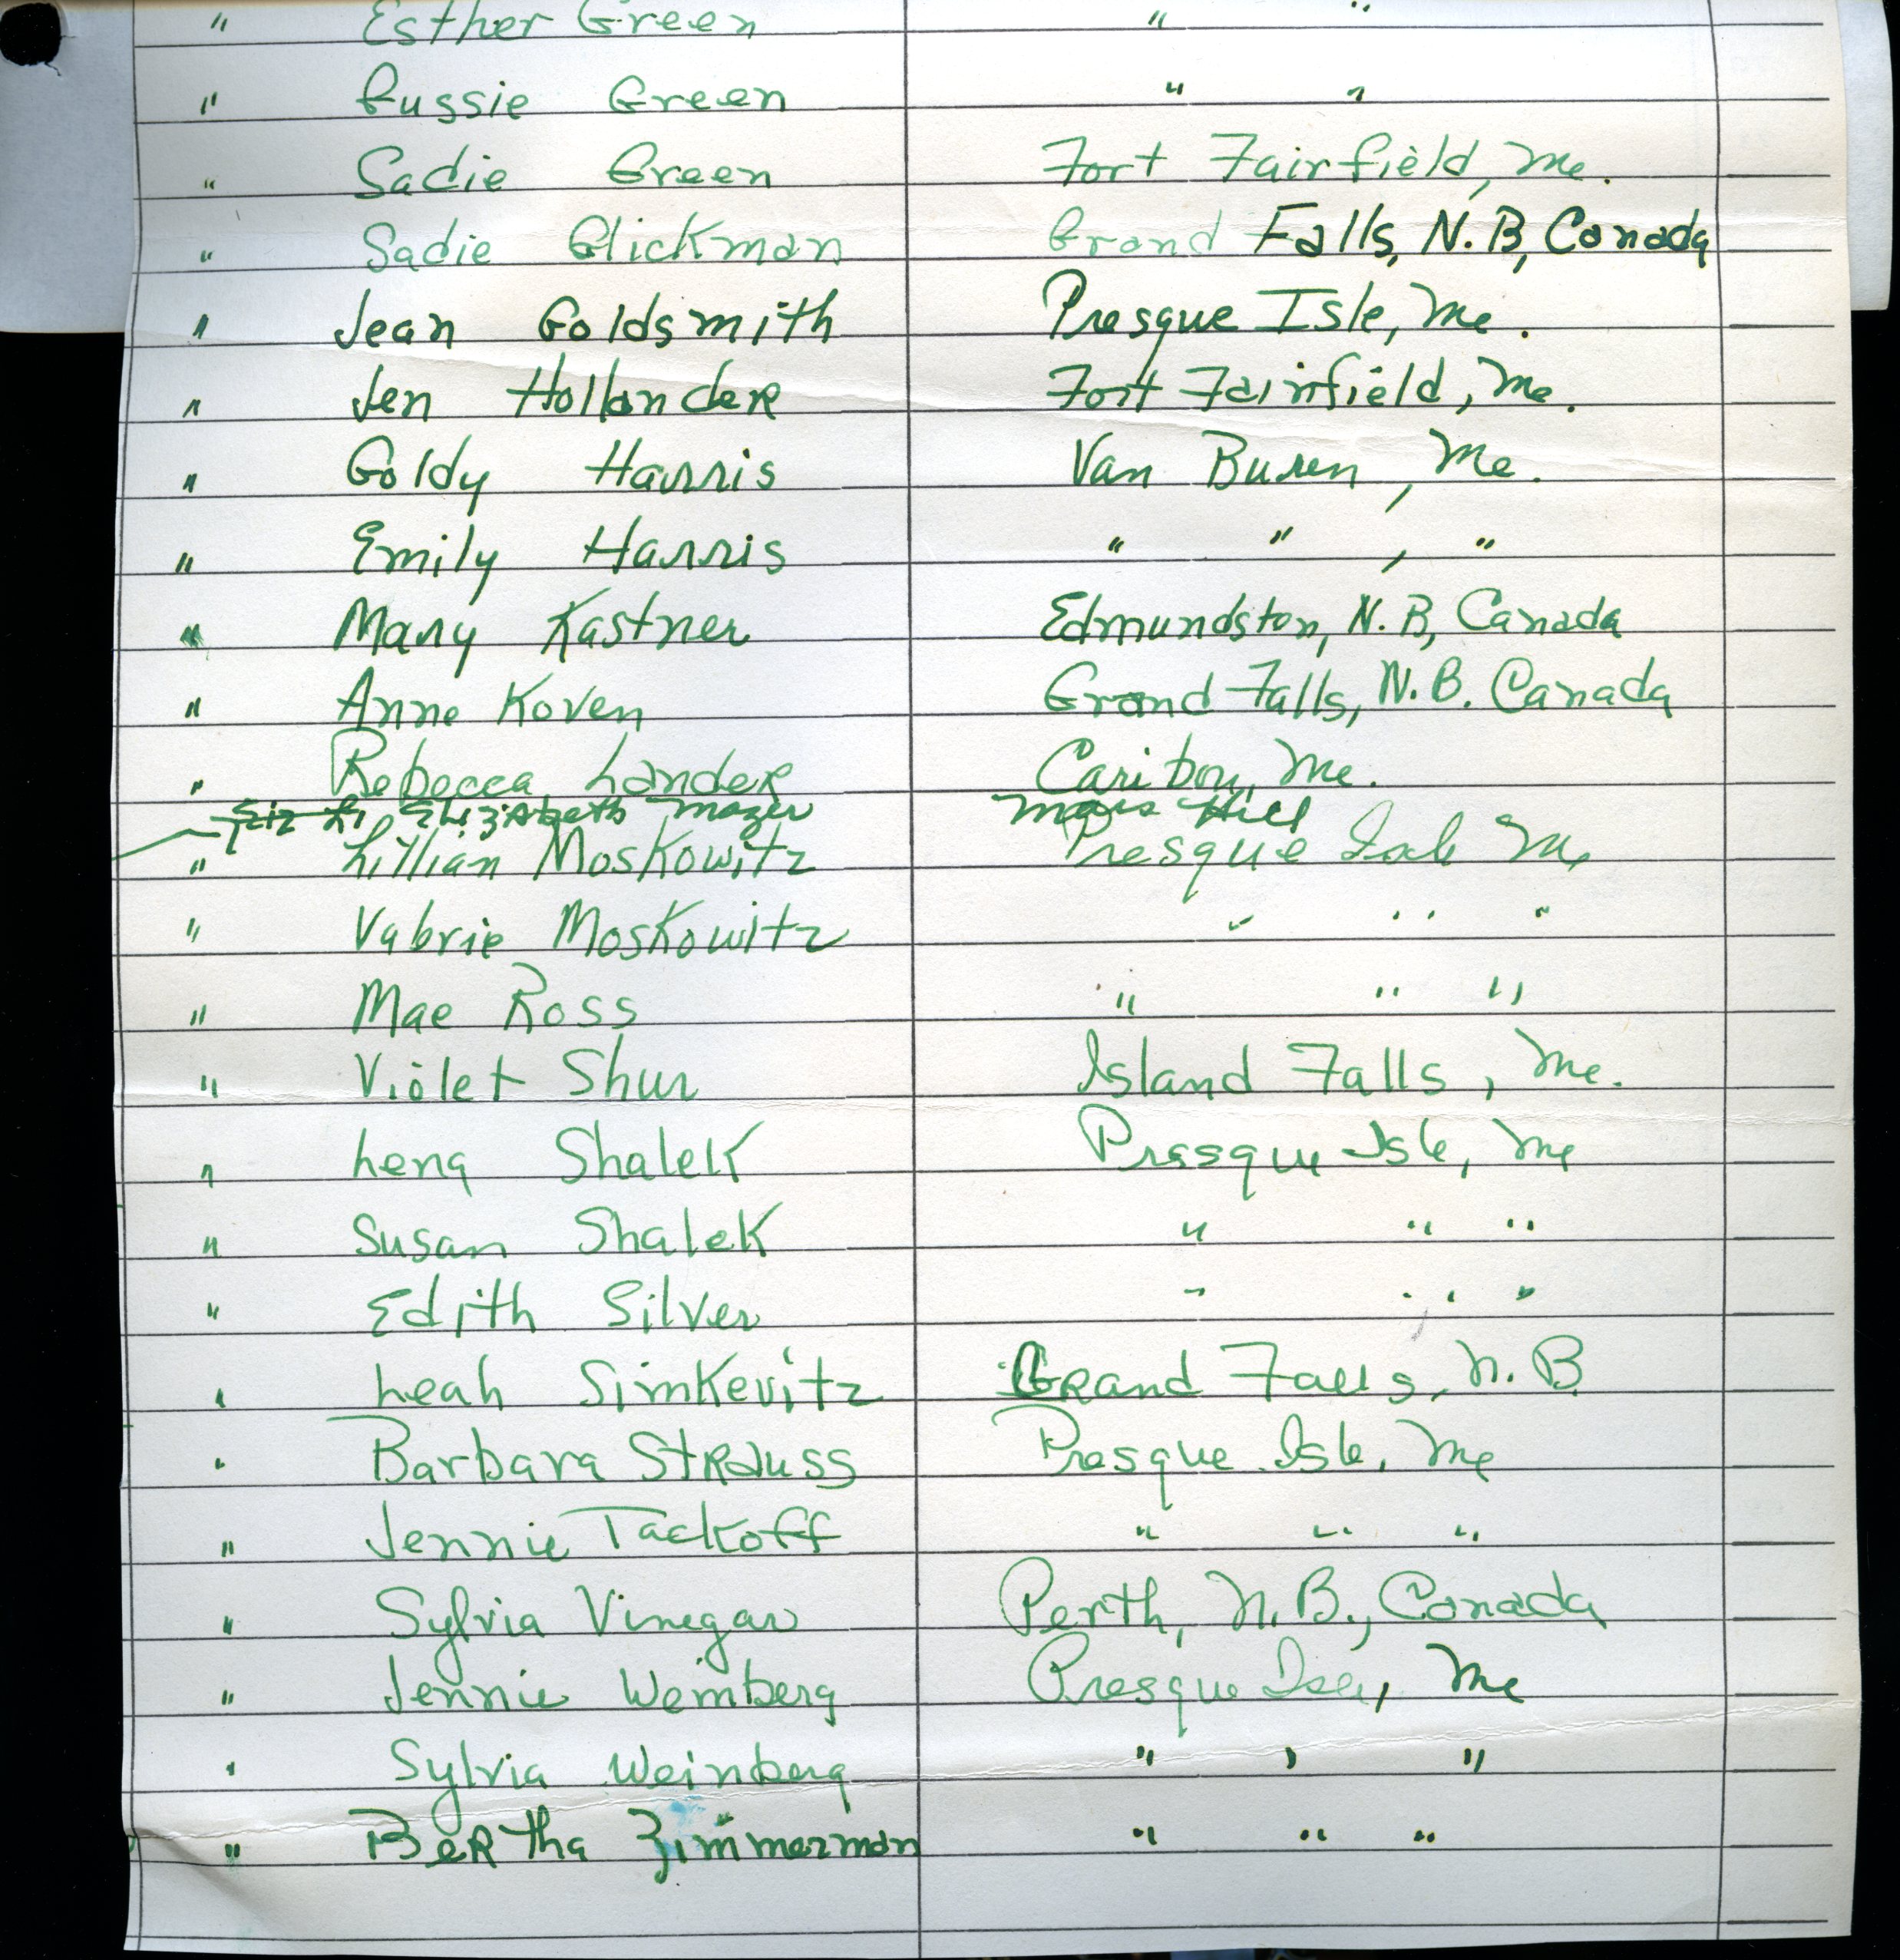 " Esther Green " "
" Gussie Green " "
" Sadie Green Fort Fairfield, Me.
" Sadie Glickman Grand Falls, N.B, Canada
" Jean Goldsmith Presque Isle, Me.
" Jen Hollander Fort Fairfield, Me.
" Goldy Harris Van Buren, Me.
" Emily Harris " " , "
" Mary Kastner Edmundston, N.B, Canada
" Anne Koven Grand Falls, N.B. Canada
" Rebecca Lander Caribou, Me.
Elizabeth Mazer Mars Hill
" Lillian Moskowitz Presque Isle Me
" Valerie Moskowitz " " "
" Mae Ross " " "
" Violet Shur Island Falls, Me.
" Lena Shalek Presque Isle, Me
" Susan Shalek " " "
" Edith Silver " " "
" Leah Simkevitz Grand Falls, N.B
" Barbara Strauss Presque Isle, Me
" Jennie Tackoff " " "
" Sylvia Vinegar Perth, N.B., Canada
" Jennie Weinberg Presque Isle, Me
" Sylvia Weinberg " " "
" Bertha Zimmerman " " "